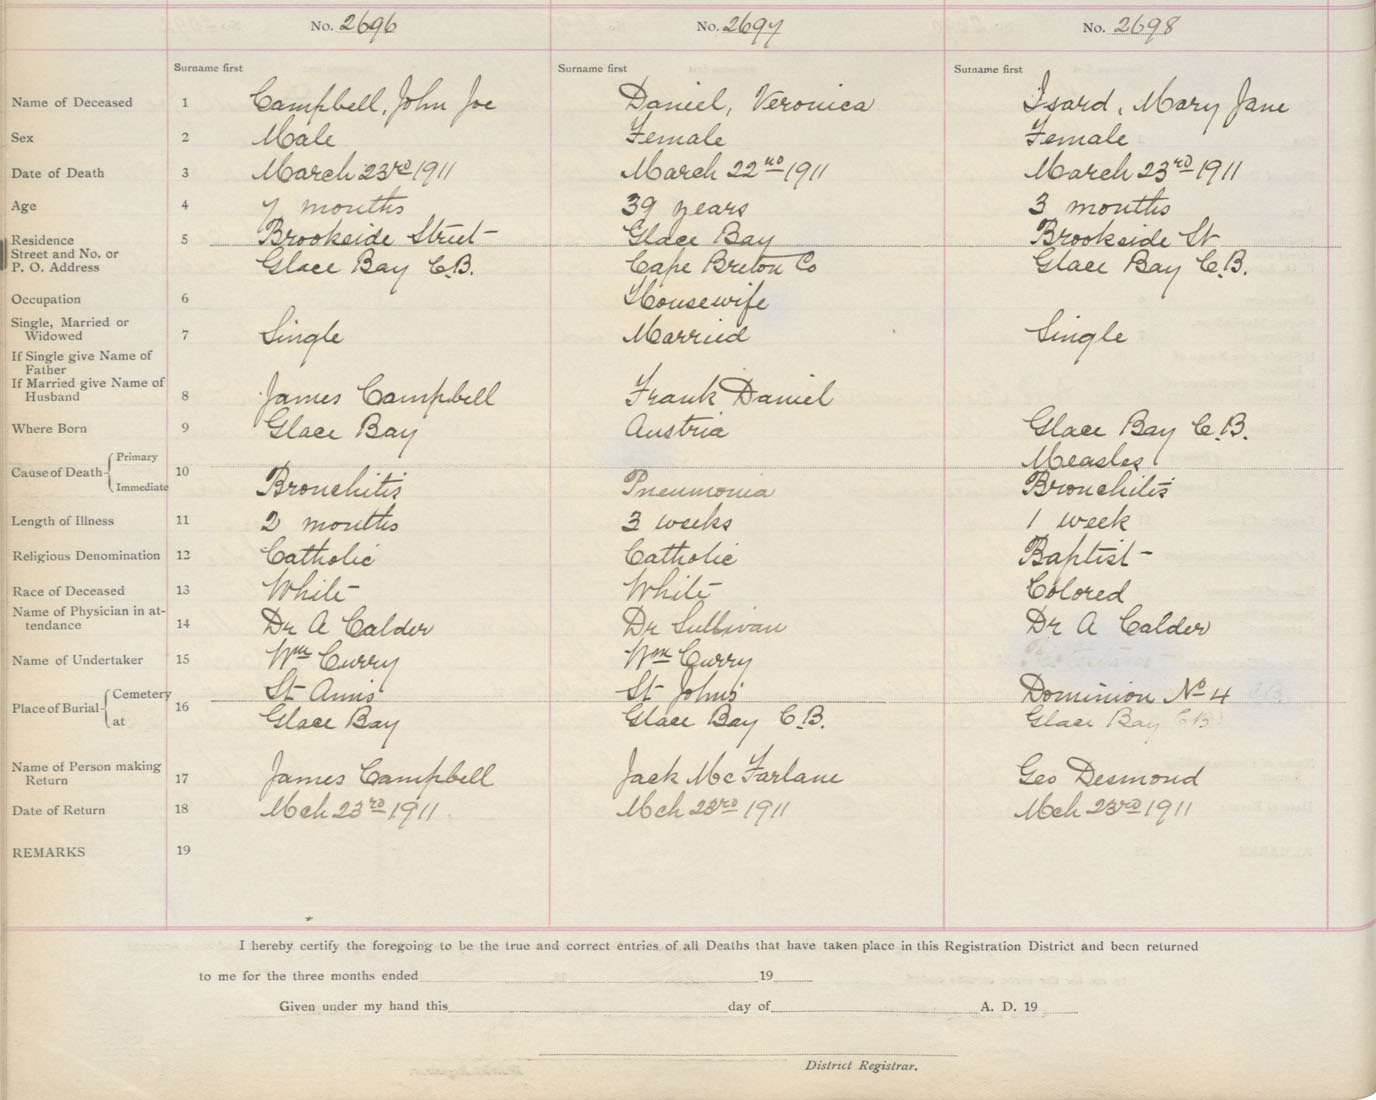 No. 2696 No. 2697 No. 2698
Surname first Surname first Surname first
Name of Deceased 1 Campbell, John Joe Daniel, Veronica Isard, Mary Jane
Sex 2 Male Female Female
Date of Death 3 March 23rd 1911 March 22nd 1911 March 23rd 1911
Age 4 7 months 39 years 3 months
Residence 5 Brookside Street Glace Bay Brookside St
Street and No. or
P. O. Address Glace Bay C.B. Cape Breton Co Glace Bay C.B.
Occupation 6 Housewife
Single, Married or
Widowed 7 Single Married Single
If Single give Name of
Father
If Married give Name of
Husband 8 James Campbell Frank Daniel
Where Born 9 Glace Bay Austria Glace Bay C.B.
Primary Measles
Cause of Death 10
Immediate Bronchitis Pneumonia Bronchitis
Length of Illness 11 2 months 3 weeks 1 week
Religious Denomination 12 Catholic Catholic Baptist
Race of Deceased 13 White White Colored
Name of Physician in at-
tendance 14 Dr A Calder Dr Sullivan Dr A Calder
Name of Undertaker 15 Wm Curry Wm Curry
Cemetery St Anns St Johns Dominion No 4
Place of Burial 16
at Glace Bay Glace Bay C.B. Glace Bay CB
Name of Person making
Return 17 James Campbell Jack McFarlane Geo Desmond
Date of Return 18 Mch 23rd 1911 Mch 23rd 1911 Mch 23rd 1911
REMARKS 19
I hereby certify the foregoing to be the true and correct entries of all Deaths that have taken place in this Registration District and been returned
to me for the three months ended 19
Given under my hand this day of A. D. 19
District Registrar.